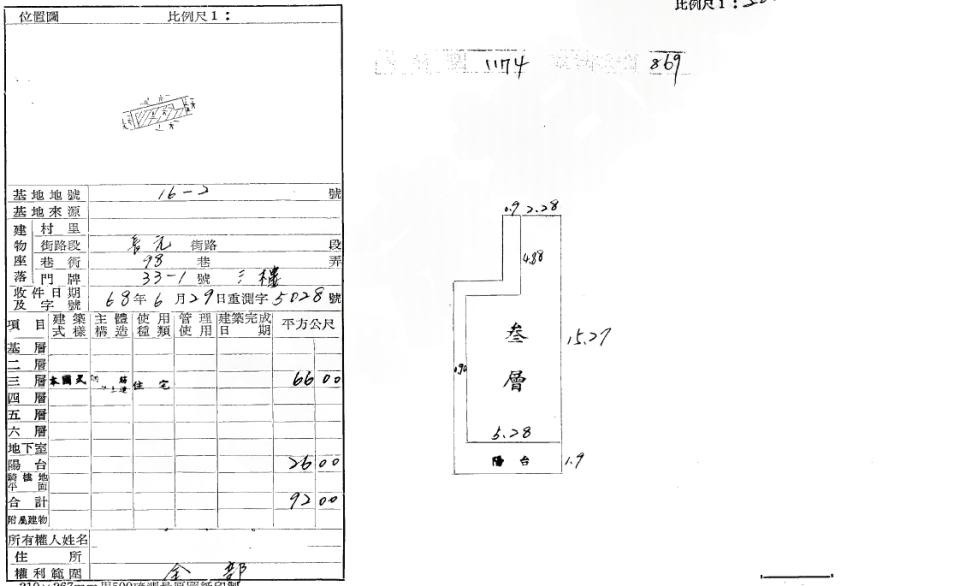 位置圖 比例尺1：
比例尺1：
1174 869
基地地號 16-2 號
基地來源
建物座落
村里
街路段 街路 段
巷衖 98 巷 弄
門牌 33-1 號 三樓
收件日期及字號 68年6月29日重測字5028號
項目 建築式樣 主體構造 使用種類 管理使用 建築完成日期 平方公尺
基層
二層
三層 本國式 住宅 66 00
四層
五層
六層
地下室
陽台 26 00
騎樓地平面
合計 92 00
附屬建物
所有權人姓名
住所
權利範圍 全部
0.9 2.28
4.88
叁層
15.27
0.90
5.28
陽台 1.9